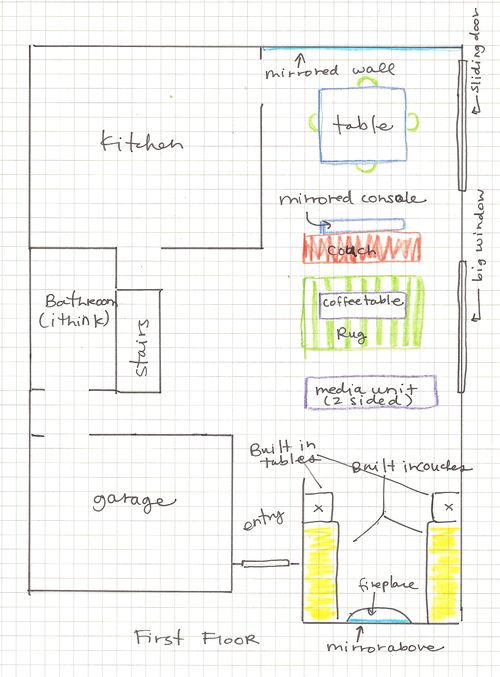 sliding door
mirrored wall
Kitchen
table
mirrored console
big window
Couch
Bathroom
(i think)
coffee table
Rug
Stairs
media unit
(2 sided)
Built in
tables
Built in couches
garage
x
x
entry
fireplace
First Floor
mirror above